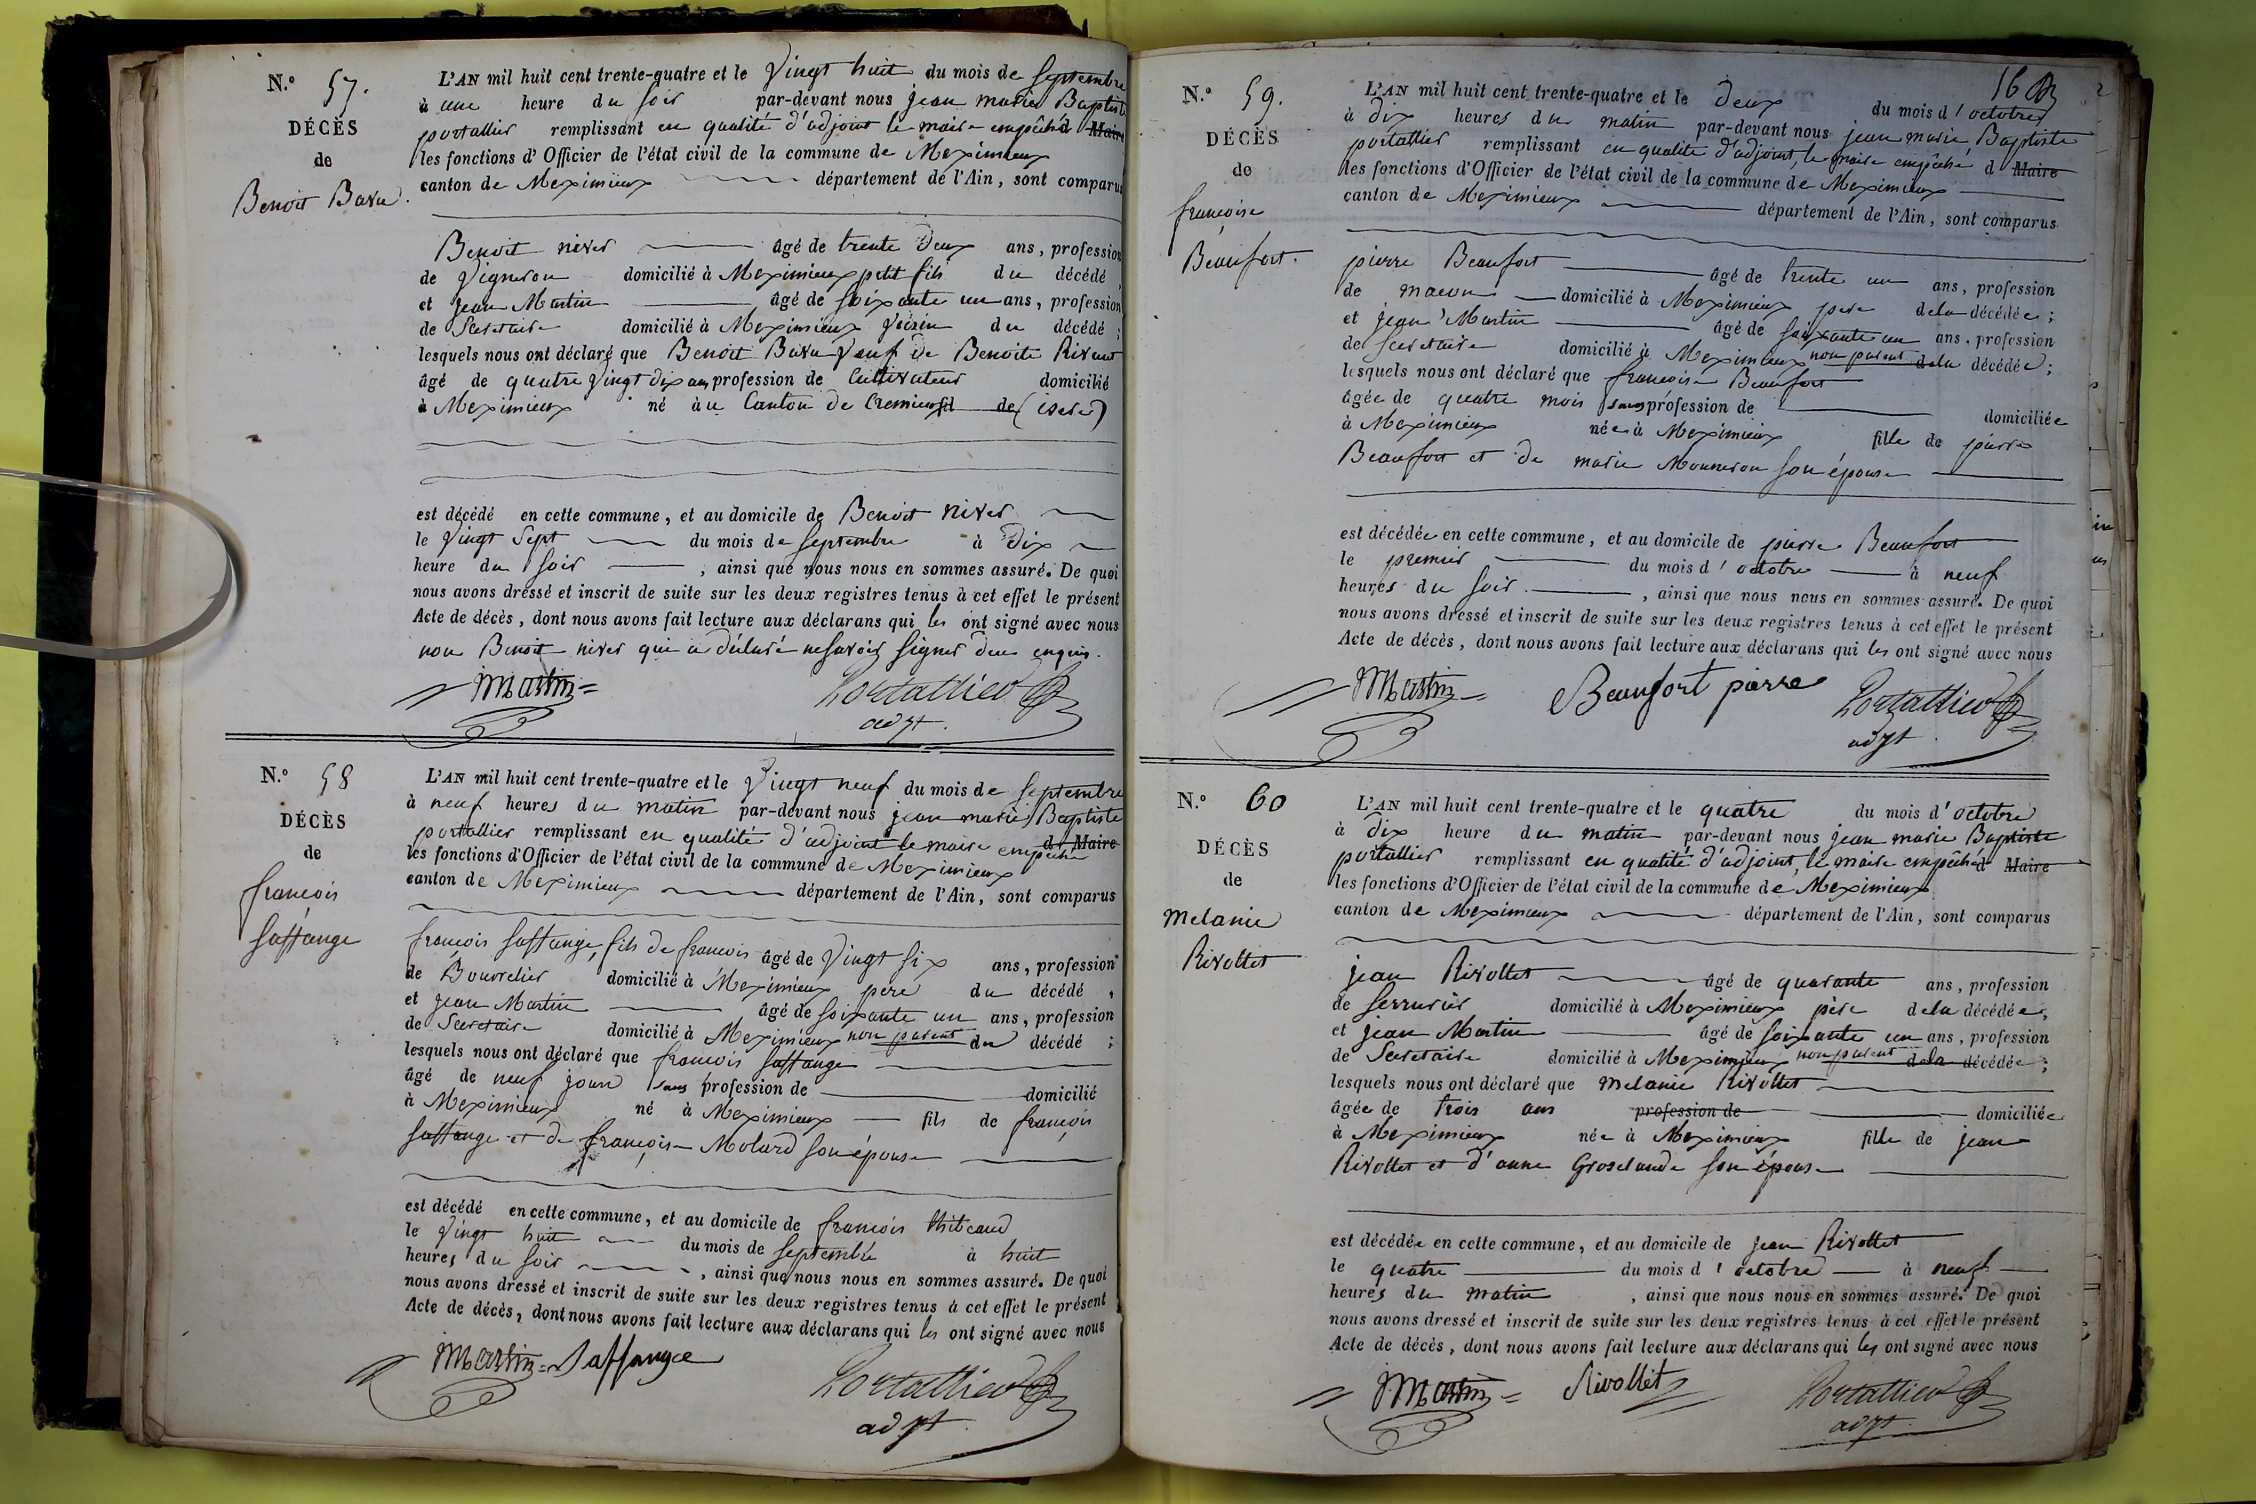 N.° 57.
DÉCÈS
de
Benoit Bavu.
L'AN mil huit cent trente-quatre et le Vingt huit du mois de Septembre
à une heure du soir par-devant nous jean marie Baptiste
portallier remplissant en qualité d'adjoint le maire empêché d Maire
les fonctions d'Officier de l'état civil de la commune de Meximieux
canton de Meximieux département de l'Ain, sont comparus
Benoit niver âgé de trente Deux ans, profession
de Vigneron domicilié à Meximieux petit fils du décédé,
et jean Martin âgé de soixante un ans, profession
de Secretaire domicilié à Meximieux Voisin du décédé ;
lesquels nous ont déclaré que Benoit Bavu Veuf de Benoite Rivaut
âgé de quatre Vingt dix ans profession de Cultivateur domicilié
à Meximieux né au Canton de Cremieux fil de (isere)
est décédé en cette commune, et au domicile de Benoit niver
le Vingt Sept du mois de Septembre à Dix
heure du soir , ainsi que nous nous en sommes assuré. De quoi
nous avons dressé et inscrit de suite sur les deux registres tenus à cet effet le présent
Acte de décès, dont nous avons fait lecture aux déclarans qui les ont signé avec nous
non Benoit niver qui a déclaré ne savoir signer de ce enquis.
Martin Portallier
adjt
N.° 58
DÉCÈS
de
françois
Saffange
L'AN mil huit cent trente-quatre et le Vingt neuf du mois de Septembre
à neuf heures du matin par-devant nous jean marie Baptiste
portallier remplissant en qualité d'adjoint le maire empêché d Maire
les fonctions d'Officier de l'état civil de la commune de Meximieux
canton de Meximieux département de l'Ain, sont comparus
françois Saffange, fils de françois âgé de Vingt six ans, profession
de Bourrelier domicilié à Meximieux pere du décédé,
et jean Martin âgé de soixante un ans, profession
de Secretaire domicilié à Meximieux non parent du décédé ;
lesquels nous ont déclaré que françois Saffange
âgé de neuf jours sans profession de domicilié
à Meximieux né à Meximieux fils de françois
Saffange et de françoise Molard son épouse
est décédé en cette commune, et au domicile de françois thibeaud
le Vingt huit du mois de Septembre à huit
heures du soir , ainsi que nous nous en sommes assuré. De quoi
nous avons dressé et inscrit de suite sur les deux registres tenus à cet effet le présent
Acte de décès, dont nous avons fait lecture aux déclarans qui les ont signé avec nous
Martin Saffange Portallier
adjt
16
N.° 59.
DÉCÈS
de
françoise
Beaufort.
L'AN mil huit cent trente-quatre et le Deux du mois d'octobre
à dix heures du matin par-devant nous jean marie Baptiste
portallier remplissant en qualité d'adjoint, le maire empêché d Maire
les fonctions d'Officier de l'état civil de la commune de Meximieux
canton de Meximieux département de l'Ain, sont comparus
pierre Beaufort âgé de trente un ans, profession
de macon domicilié à Meximieux pere de la décédée ;
et jean Martin âgé de soixante un ans, profession
de Secretaire domicilié à Meximieux non parent de la décédée ;
lesquels nous ont déclaré que françoise Beaufort
âgée de quatre mois sans profession de domiciliée
à Meximieux née à Meximieux fille de pierre
Beaufort et de marie Mouneron son épouse
est décédée en cette commune, et au domicile de pierre Beaufort
le premier du mois d'octobre à neuf
heures du soir , ainsi que nous nous en sommes assuré. De quoi
nous avons dressé et inscrit de suite sur les deux registres tenus à cet effet le présent
Acte de décès, dont nous avons fait lecture aux déclarans qui les ont signé avec nous
Martin Beaufort pierre Portallier
adjt
N.° 60
DÉCÈS
de
Melanie
Rivollet
L'AN mil huit cent trente-quatre et le quatre du mois d'octobre
à dix heure du matin par-devant nous jean marie Baptiste
portallier remplissant en qualité d'adjoint, le maire empêché d Maire
les fonctions d'Officier de l'état civil de la commune de Meximieux
canton de Meximieux département de l'Ain, sont comparus
jean Rivollet âgé de quarante ans, profession
de serrurier domicilié à Meximieux père de la décédée,
et jean Martin âgé de soixante un ans, profession
de Secretaire domicilié à Meximieux non parent de la décédée ;
lesquels nous ont déclaré que Melanie Rivollet
âgée de trois ans profession de domiciliée
à Meximieux née à Meximieux fille de jean
Rivollet et d'anne Groselande son épouse
est décédée en cette commune, et au domicile de jean Rivollet
le quatre du mois d'octobre à neuf
heures du matin , ainsi que nous nous en sommes assuré. De quoi
nous avons dressé et inscrit de suite sur les deux registres tenus à cet effet le présent
Acte de décès, dont nous avons fait lecture aux déclarans qui les ont signé avec nous
Martin Rivollet Portallier
adjt